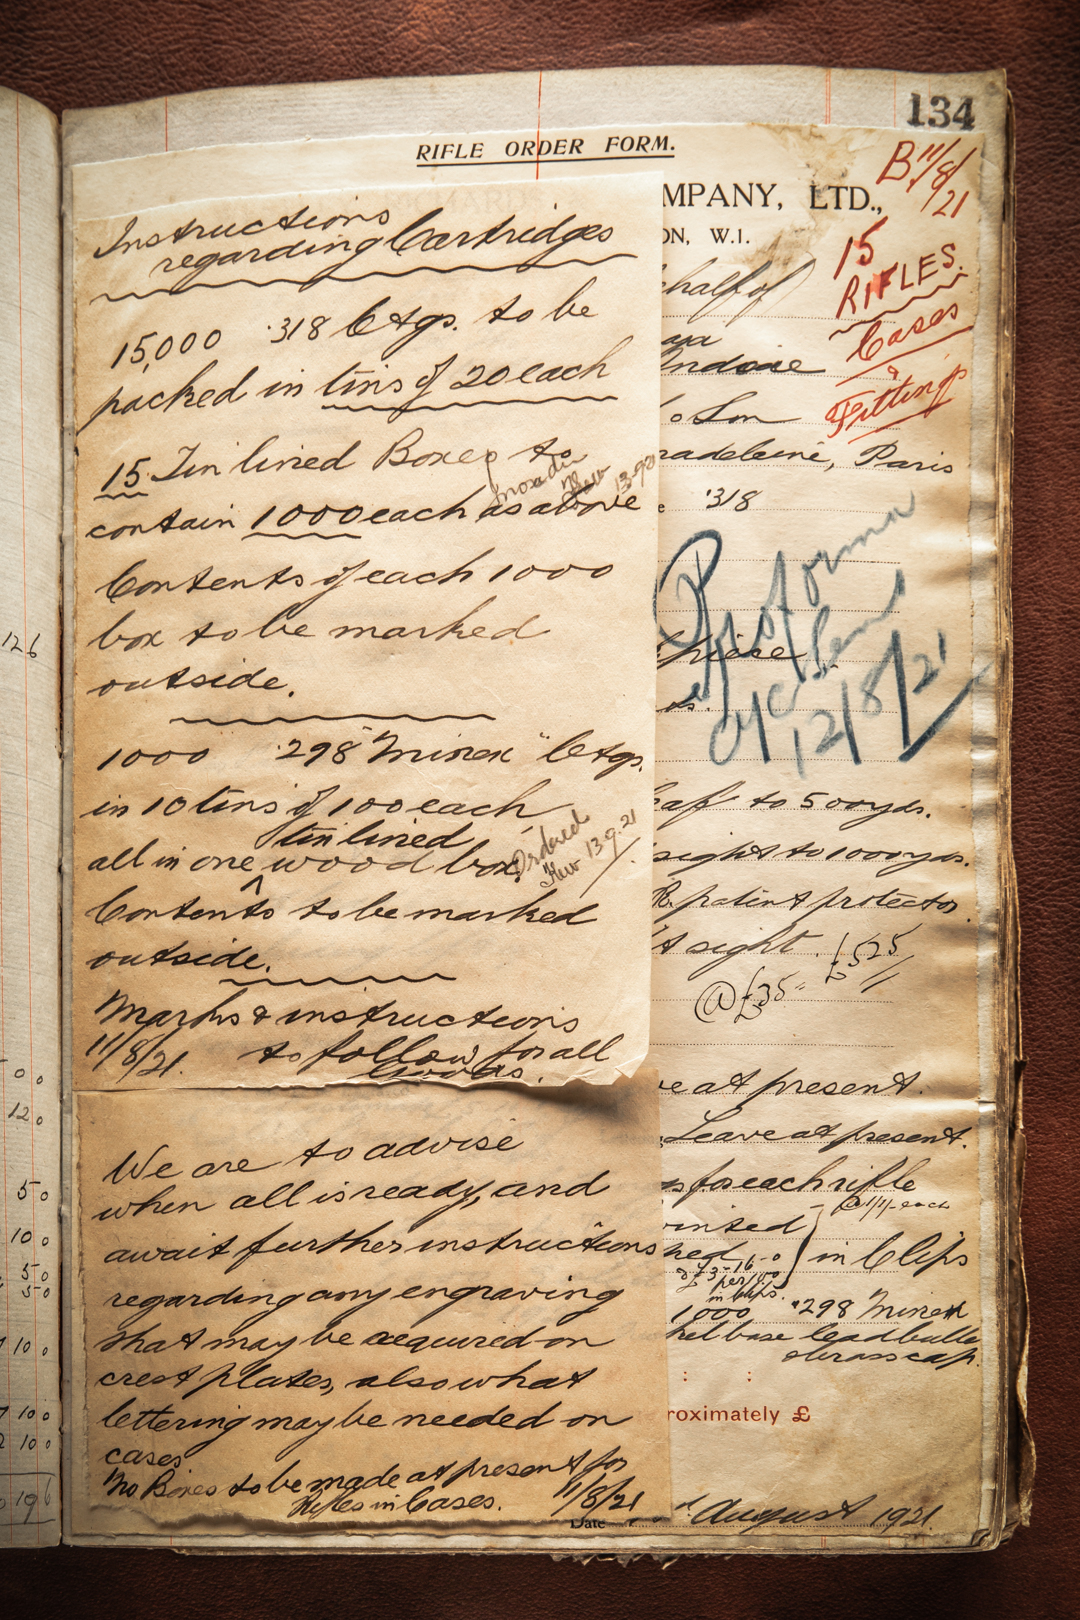 134
RIFLE ORDER FORM.
B 11/8/21
MPANY, LTD.,
ON, W.1.
15
RIFLES.
Cases
&
Fittings
Instructions
regarding Cartridges
15,000 .318 Ctgs. to be
packed in tins of 20 each
15 Tin lined Boxes to
13-9-21
contain 1000 each as above
Contents of each 1000
box to be marked
outside.
1000 .298 "Minex" Ctgs.
in 10 tins of 100 each
tin lined
all in one ^ wood box.
Ordered
Kew 13.9.21
Contents to be marked
outside.
Marks & instructions
11/8/21. to follow for all
Goods.
We are to advise
when all is ready, and
await further instructions
regarding any engraving
that may be required on
crest plates, also what
lettering may be needed on
cases
No Boxes to be made at present for
Rifles in Cases. 11/8/21
half of
& Son
adeleine, Paris
.318
Proforma
a/c sent
12/8/21
piece
leaf to 500 yds.
sight to 1000 yds.
R. patent protector
t sight. £525
@ £35
e at present.
Leave at present.
s for each rifle
@ 1/1/- each
ointed
hed
£3-16-0
per 100
in clips
} in Clips
1000 .298 Minex
kel base lead bullet
roximately £
Date August 1921.
126
00
120
50
100
50
50
100
100
100
196